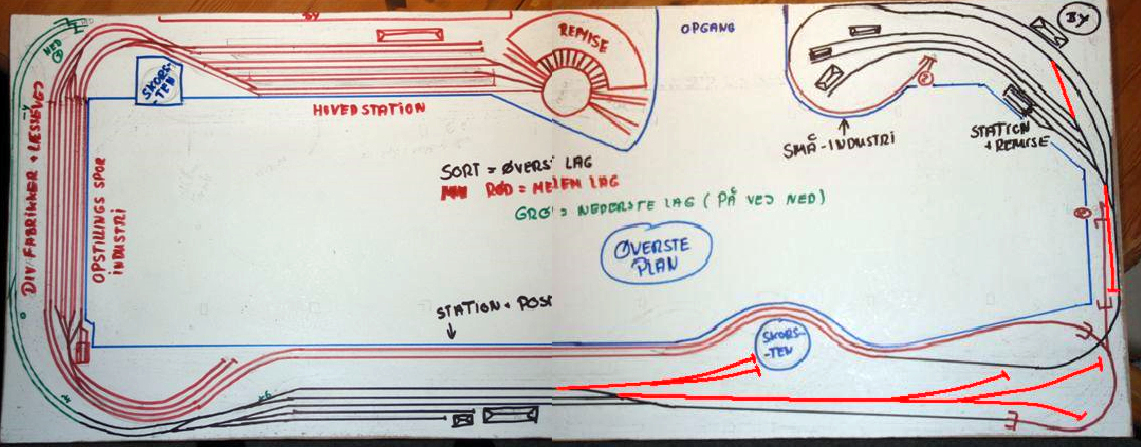 BY
REMISE
OPGANG
BY
NED
SKORS-
-TEN
HOVEDSTATION
SMÅ-INDUSTRI
STATION
+ REMISE
DIV FABRIKKER + LÆSSEVEJ
OPSTILLINGS SPOR
INDUSTRI
SORT = ØVERS' LAG
RØD = MELEM LAG
GRØ' = NEDERSTE LAG (PÅ VEJ NED)
ØVERSTE
PLAN
STATION + POS
SKORS-
-TEN